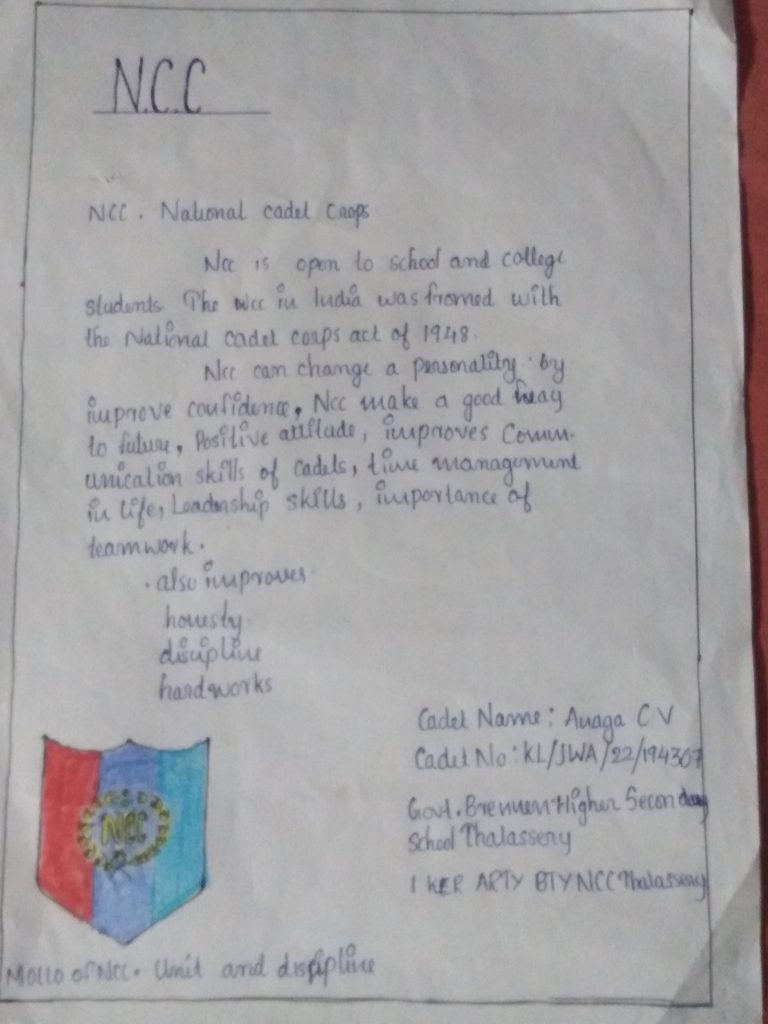 N.C.C
NCC. National cadet Crops
Ncc is open to school and college
students. The Ncc in India was fromed with
the National cadet corps act of 1948.
Ncc can change a personality by
improve confidence, Ncc make a good way
to future, Positive attitude, improves Comm-
unication skills of cadets, time management
in life, Leadership skills, importance of
teamwork.
. also improves
honesty
discipline
hardworks
Cadet Name: Anaga C V
Cadet No: KL/JWA/22/194367
Govt. Brennen Higher Secondary
School Thalassery
1 KER ARTY BTY NCC Thalassery
NCC
Motto of NCC. Unit and discipline